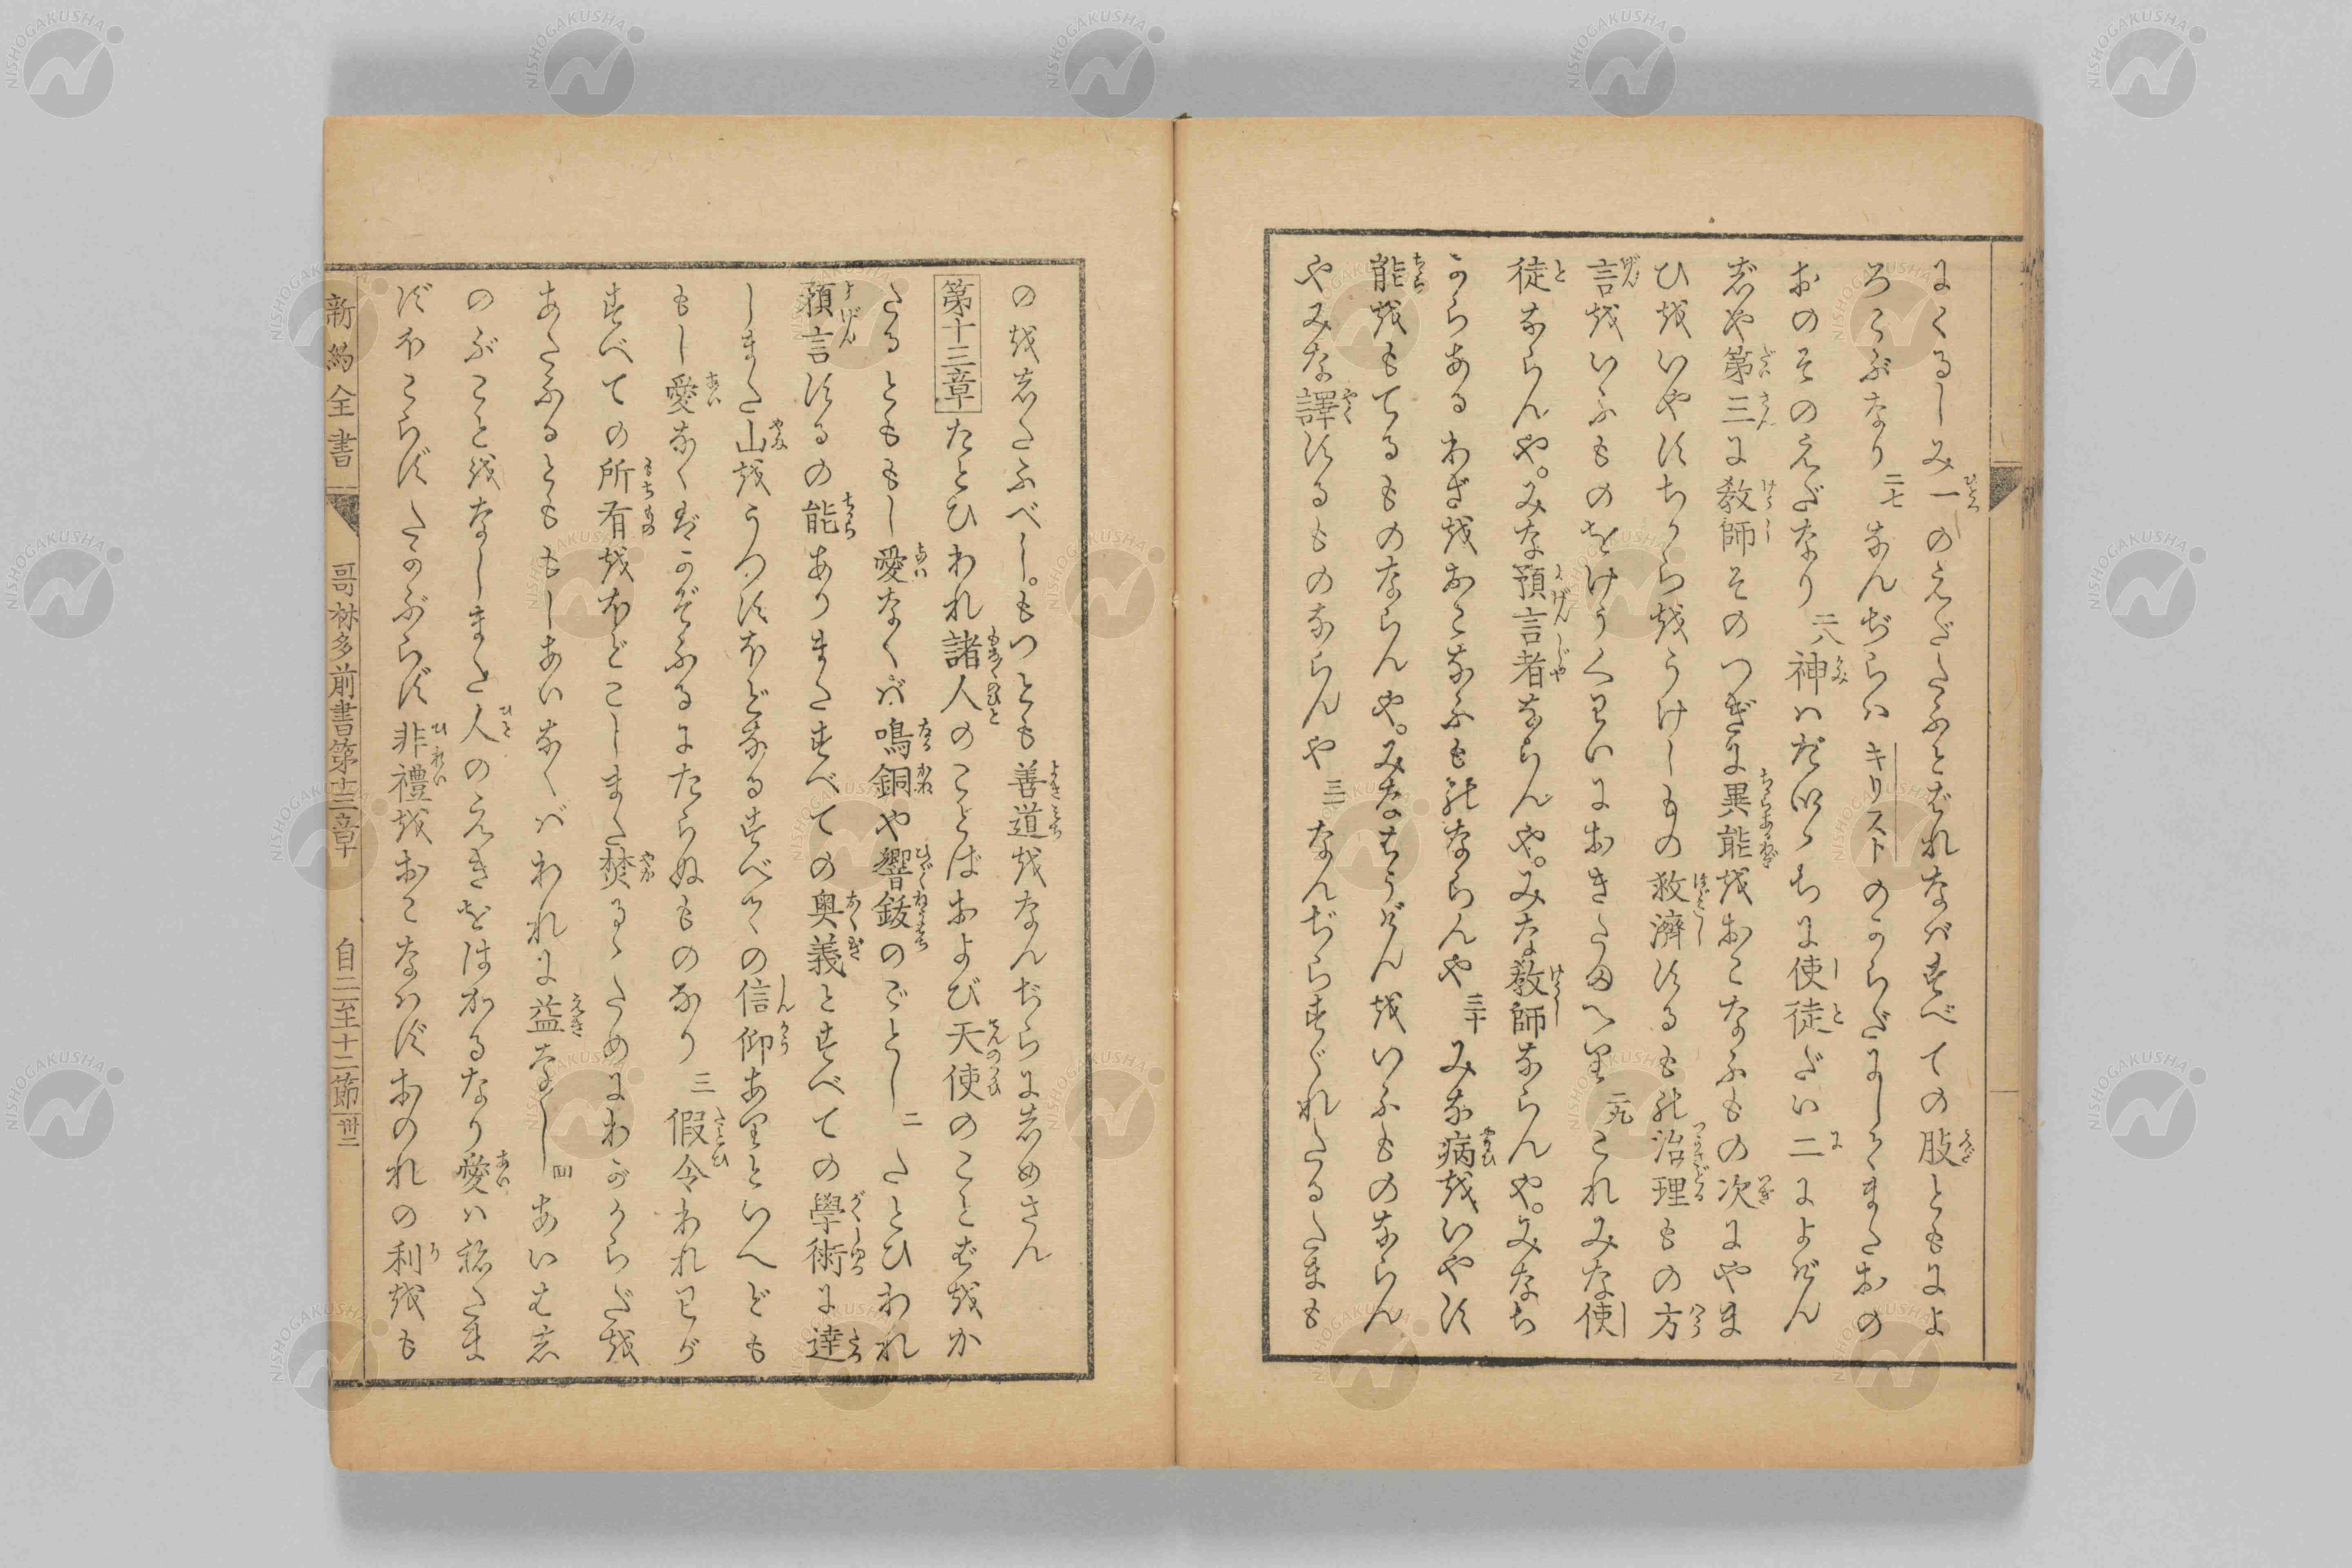 にくるしみ一のえだたふとばれなバすべての肢ともによ
ろこぶなり 二七 なんぢらハキリストのからだにしてまたおの
おのそのえだなり 二八 神ハだいいちに使徒だい二によげん
しや第三に教師そのつぎに異能をおこなふもの次にやま
ひをいやすちからをうけしもの救濟するもの治理もの方
言をいふものをけうくわいにおきたまへり 二九 これみな使
徒ならんや。みな預言者ならんや。みな教師ならんや。みなち
からあるわざをおこなふものならんや 三十 みな病をいやす
能をもてるものならんや。みなはうげんをいふものならん
やみな譯するものならんや 三一 なんぢらすぐれたるたまも
のをしたふべし。もつとも善道をなんぢらにしめさん
第十三章 たとひわれ諸人のことばおよび天使のことばをか
たるとももし愛なくバ鳴銅や響鈸のごとし 二 たとひわれ
預言するの能ありまたすべての奥義とすべての學術に達
しまた山をうつすほどなるすべての信仰ありといへども
もし愛なくばかぞふるにたらぬものなり 三 假令われわが
すべての所有をほどこしまた焚るゝためにわがからだを
あたふるとももしあいなくバわれに益なし 四 あいはし
のぶことをなしまた人のえきをはかるなり愛ハねたま
ずほこらずたかぶらず非禮をおこなハずおのれの利をも
新約全書 哥林多前書第十三章 自二至十二節 卅二
NISHOGAKUSHA